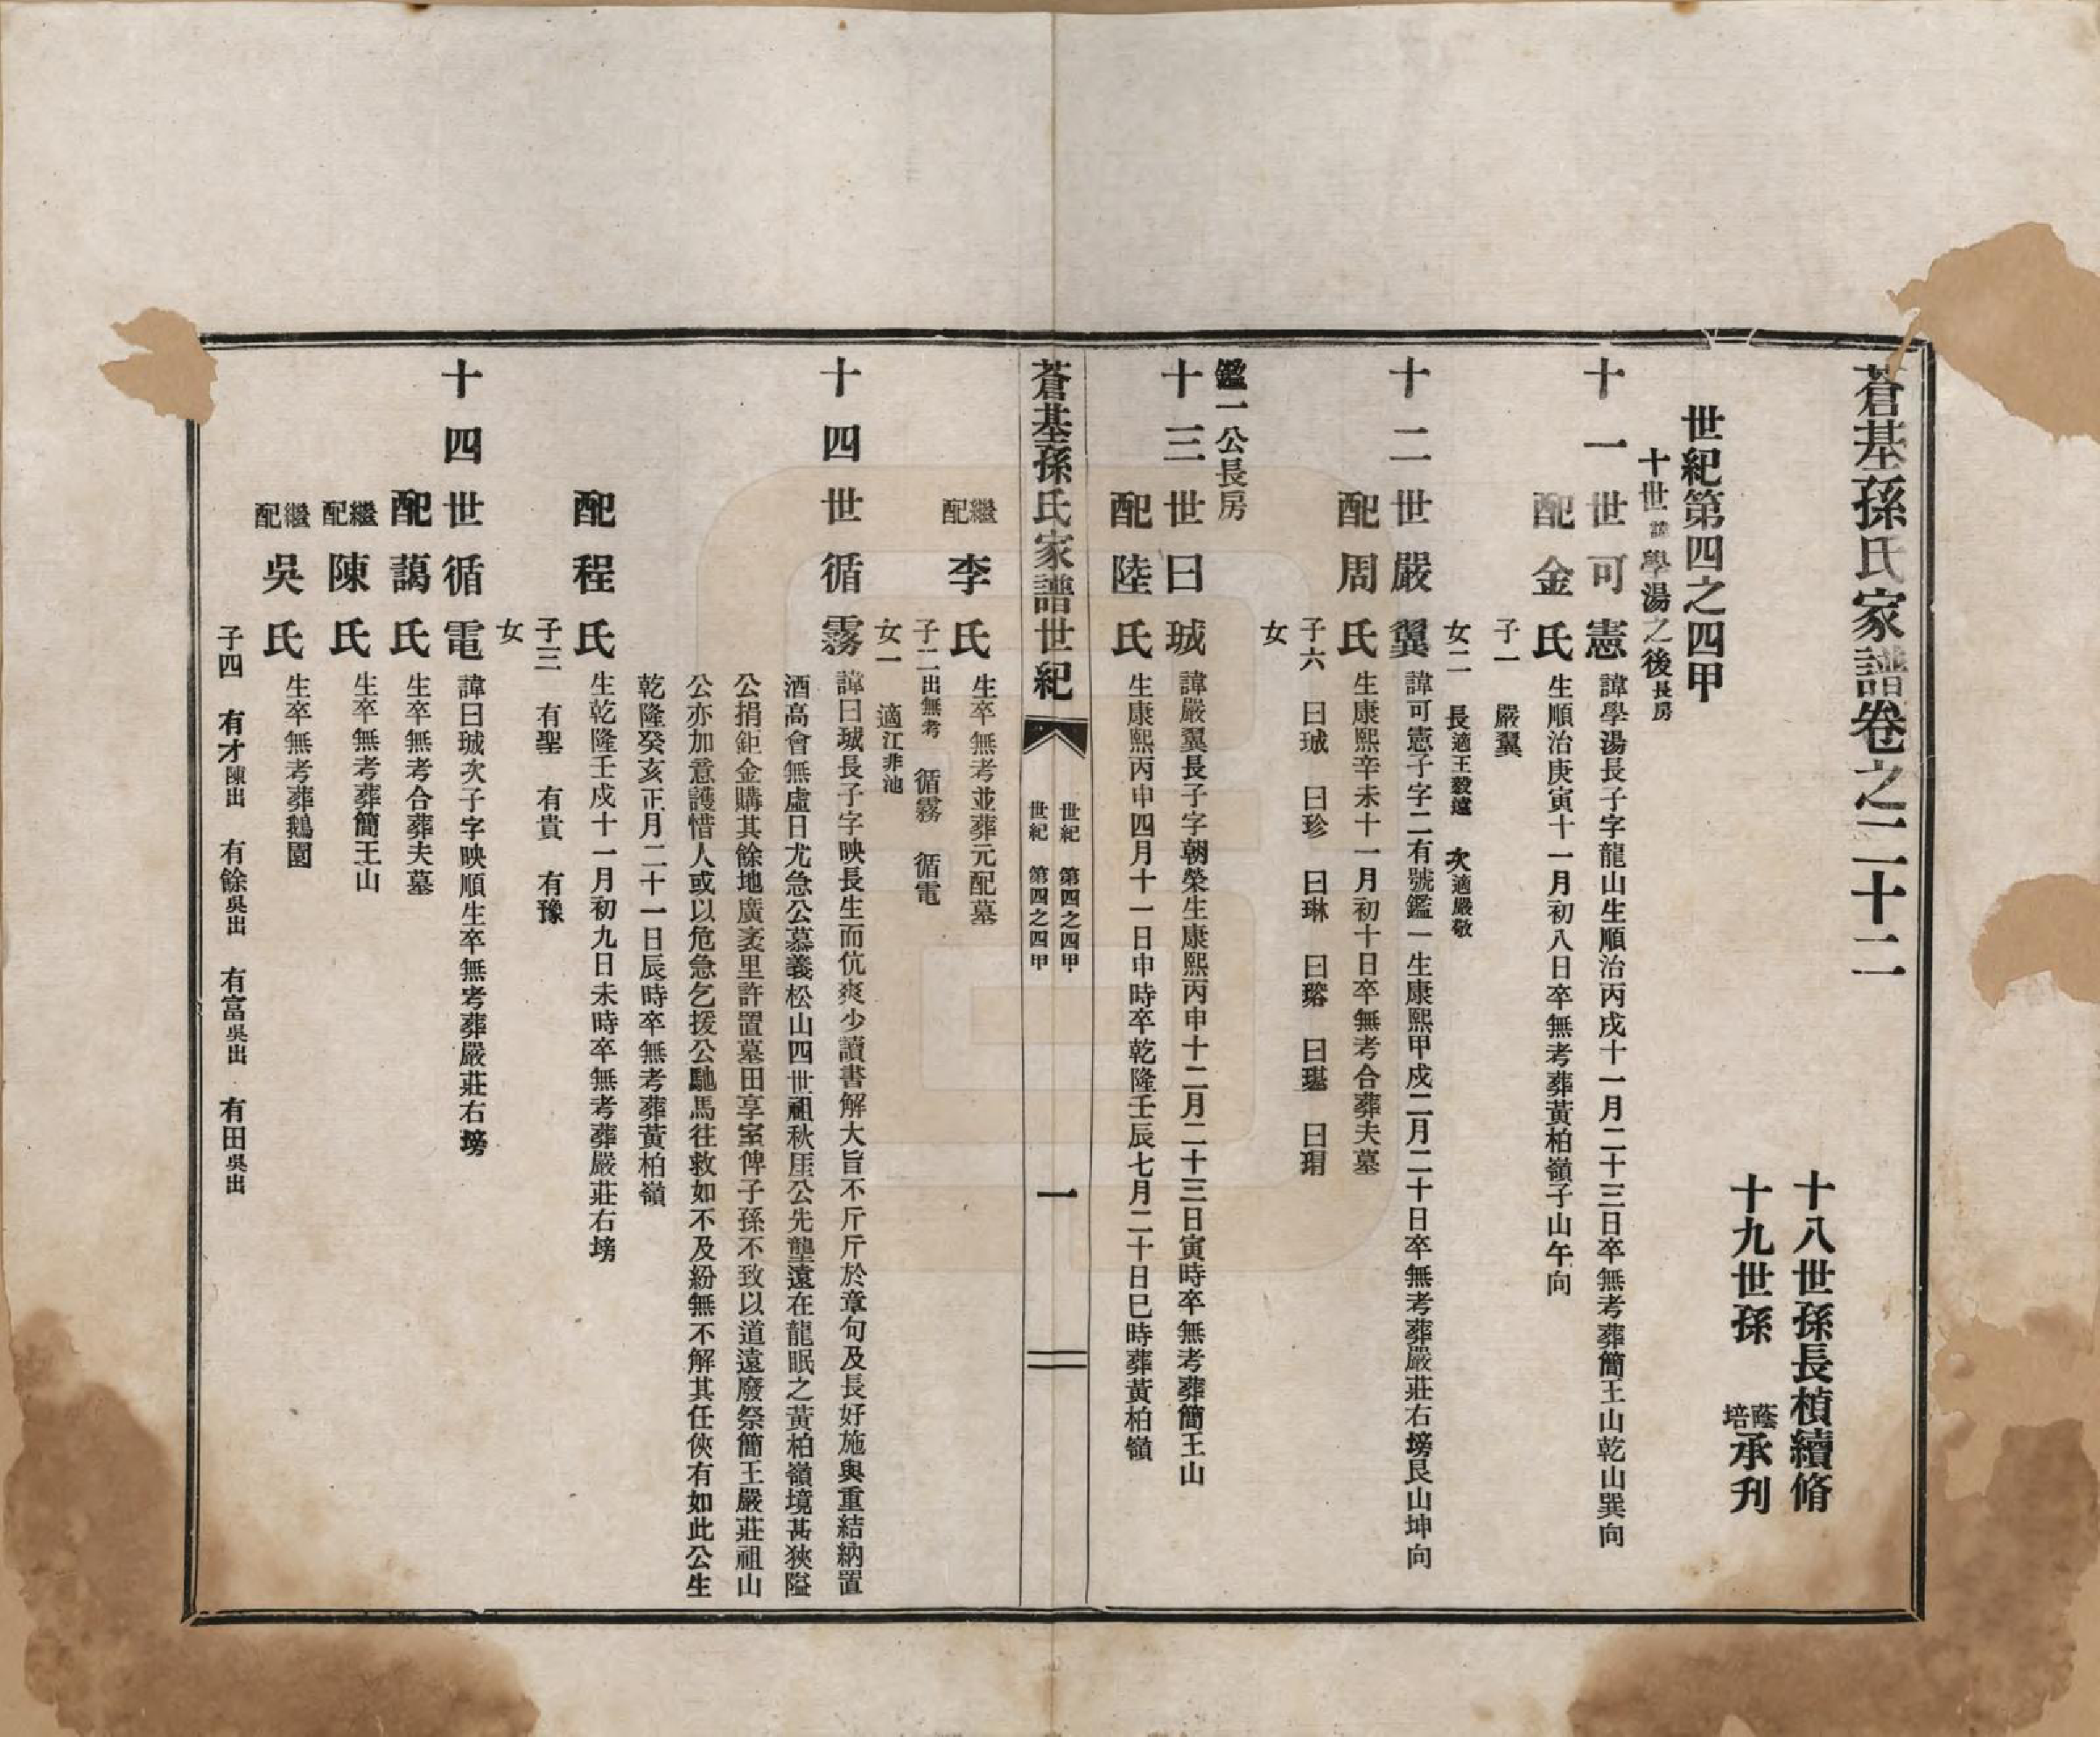 蒼基孫氏家譜卷之二十二
十八世孫長楨續脩
十九世孫 蔭培承刊
世紀第四之四甲
十世諱學湯之後長房
十一世可憲 諱學湯長子字龍山生順治丙戌十一月二十三日卒無考葬簡王山乾山巽向
配金氏 生順治庚寅十一月初八日卒無考葬黃柏嶺子山午向
子一 嚴翼
女二 長適王毅遠 次適嚴敬
十二世嚴翼 諱可憲子字二有號鑑一生康熙甲戌二月二十日卒無考葬嚴莊右塝艮山坤向
配周氏 生康熙辛未十一月初十日卒無考合葬夫墓
子六 曰珹 曰珍 曰琳 曰瑢 曰璂 曰琄
女
鑑一公長房
十三世曰珹 諱嚴翼長子字朝榮生康熙丙申十二月二十三日寅時卒無考葬簡王山
配陸氏 生康熙丙申四月十一日申時卒乾隆壬辰七月二十日巳時葬黃柏嶺
蒼基孫氏家譜世紀
世紀 第四之四甲
世紀 第四之四甲
一
繼配李氏 生卒無考並葬元配墓
子二出無考 循霧 循電
女一 適江非池
十四世循霧 諱曰珹長子字映長生而伉爽少讀書解大旨不斤斤於章句及長好施與重結納置
酒高會無虛日尤急公慕義松山四世祖秋厓公先壟遠在龍眠之黃柏嶺境甚狹隘
公捐鉅金購其餘地廣袤里許置墓田享室俾子孫不致以道遠廢祭簡王嚴莊祖山
公亦加意護惜人或以危急乞援公馳馬往救如不及紛無不解其任俠有如此公生
乾隆癸亥正月二十一日辰時卒無考葬黃柏嶺
配程氏 生乾隆壬戌十一月初九日未時卒無考葬嚴莊右塝
子三 有聖 有貴 有豫
女
十四世循電 諱曰珹次子字映順生卒無考葬嚴莊右塝
配藹氏 生卒無考合葬夫墓
繼配陳氏 生卒無考葬簡王山
繼配吳氏 生卒無考葬鵝園
子四 有才陳出 有餘吳出 有富吳出 有田吳出